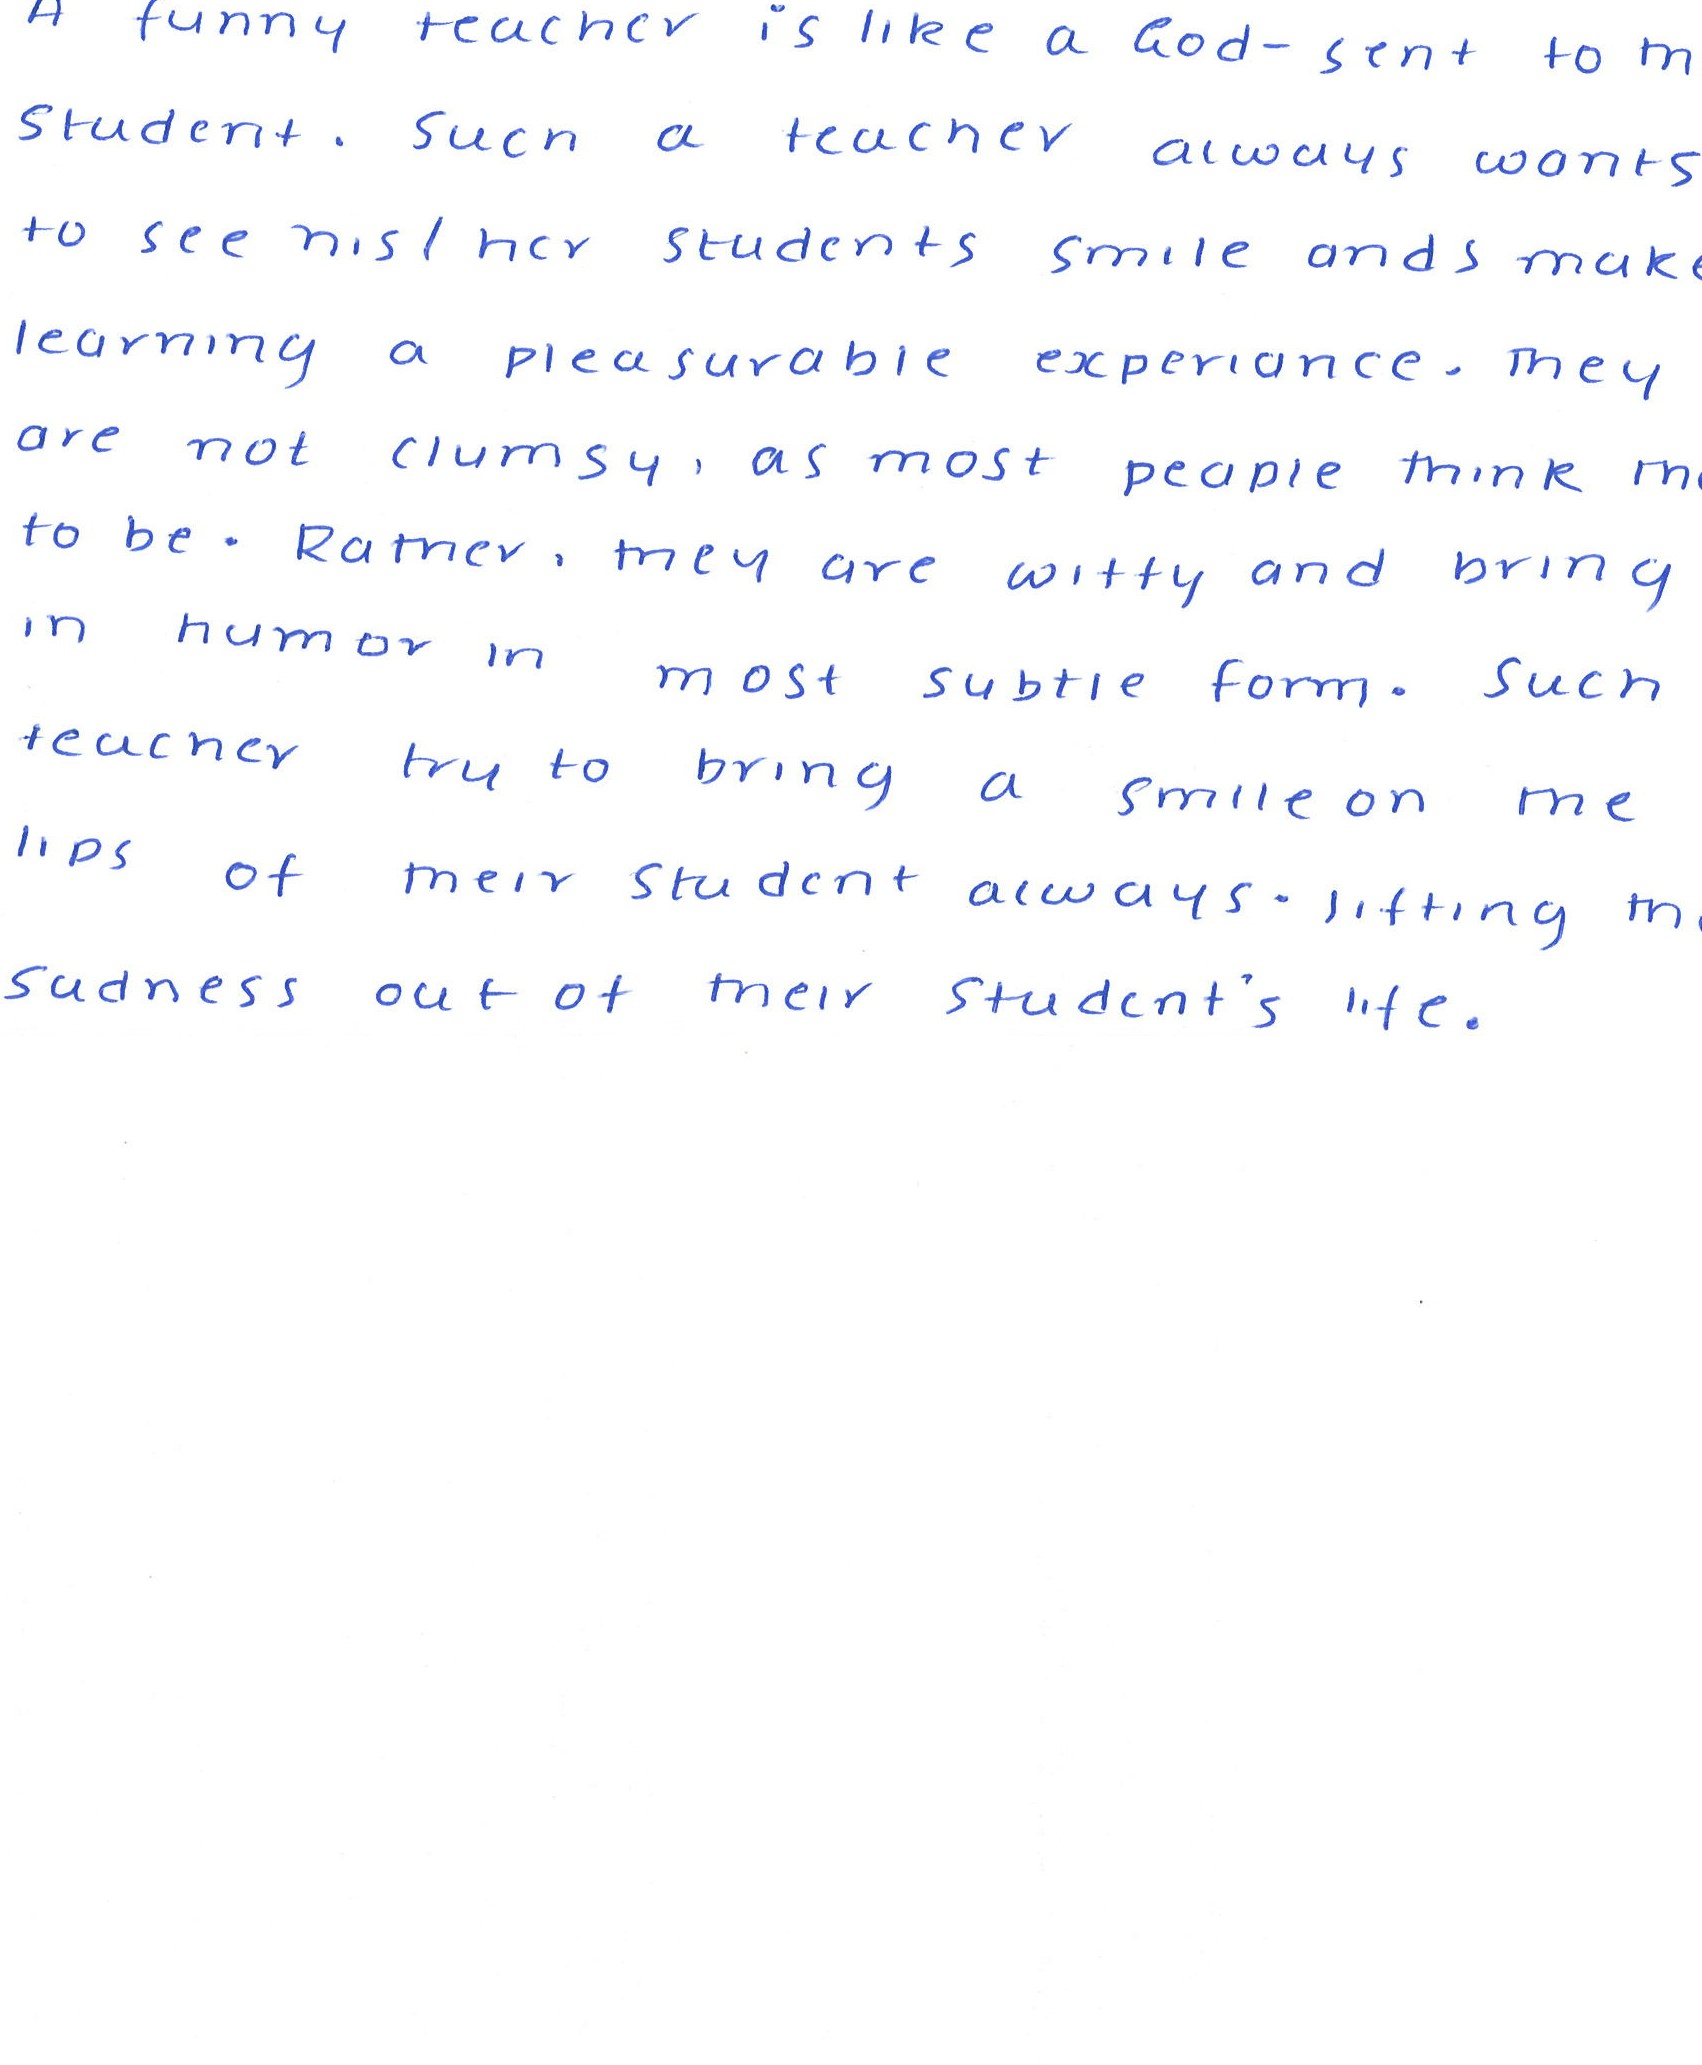 A funny teacher is like a God-sent to
student. Such a teacher always wants
to see his/her students smile ands make
learning a pleasurable experiance. They
are not clumsy, as most peaple think
to be. Rather, they are witty and bring
in humor in most subtle form. Such
teacher try to bring a smile on the
lips of their student always. lifting
sadness out of their student's life.